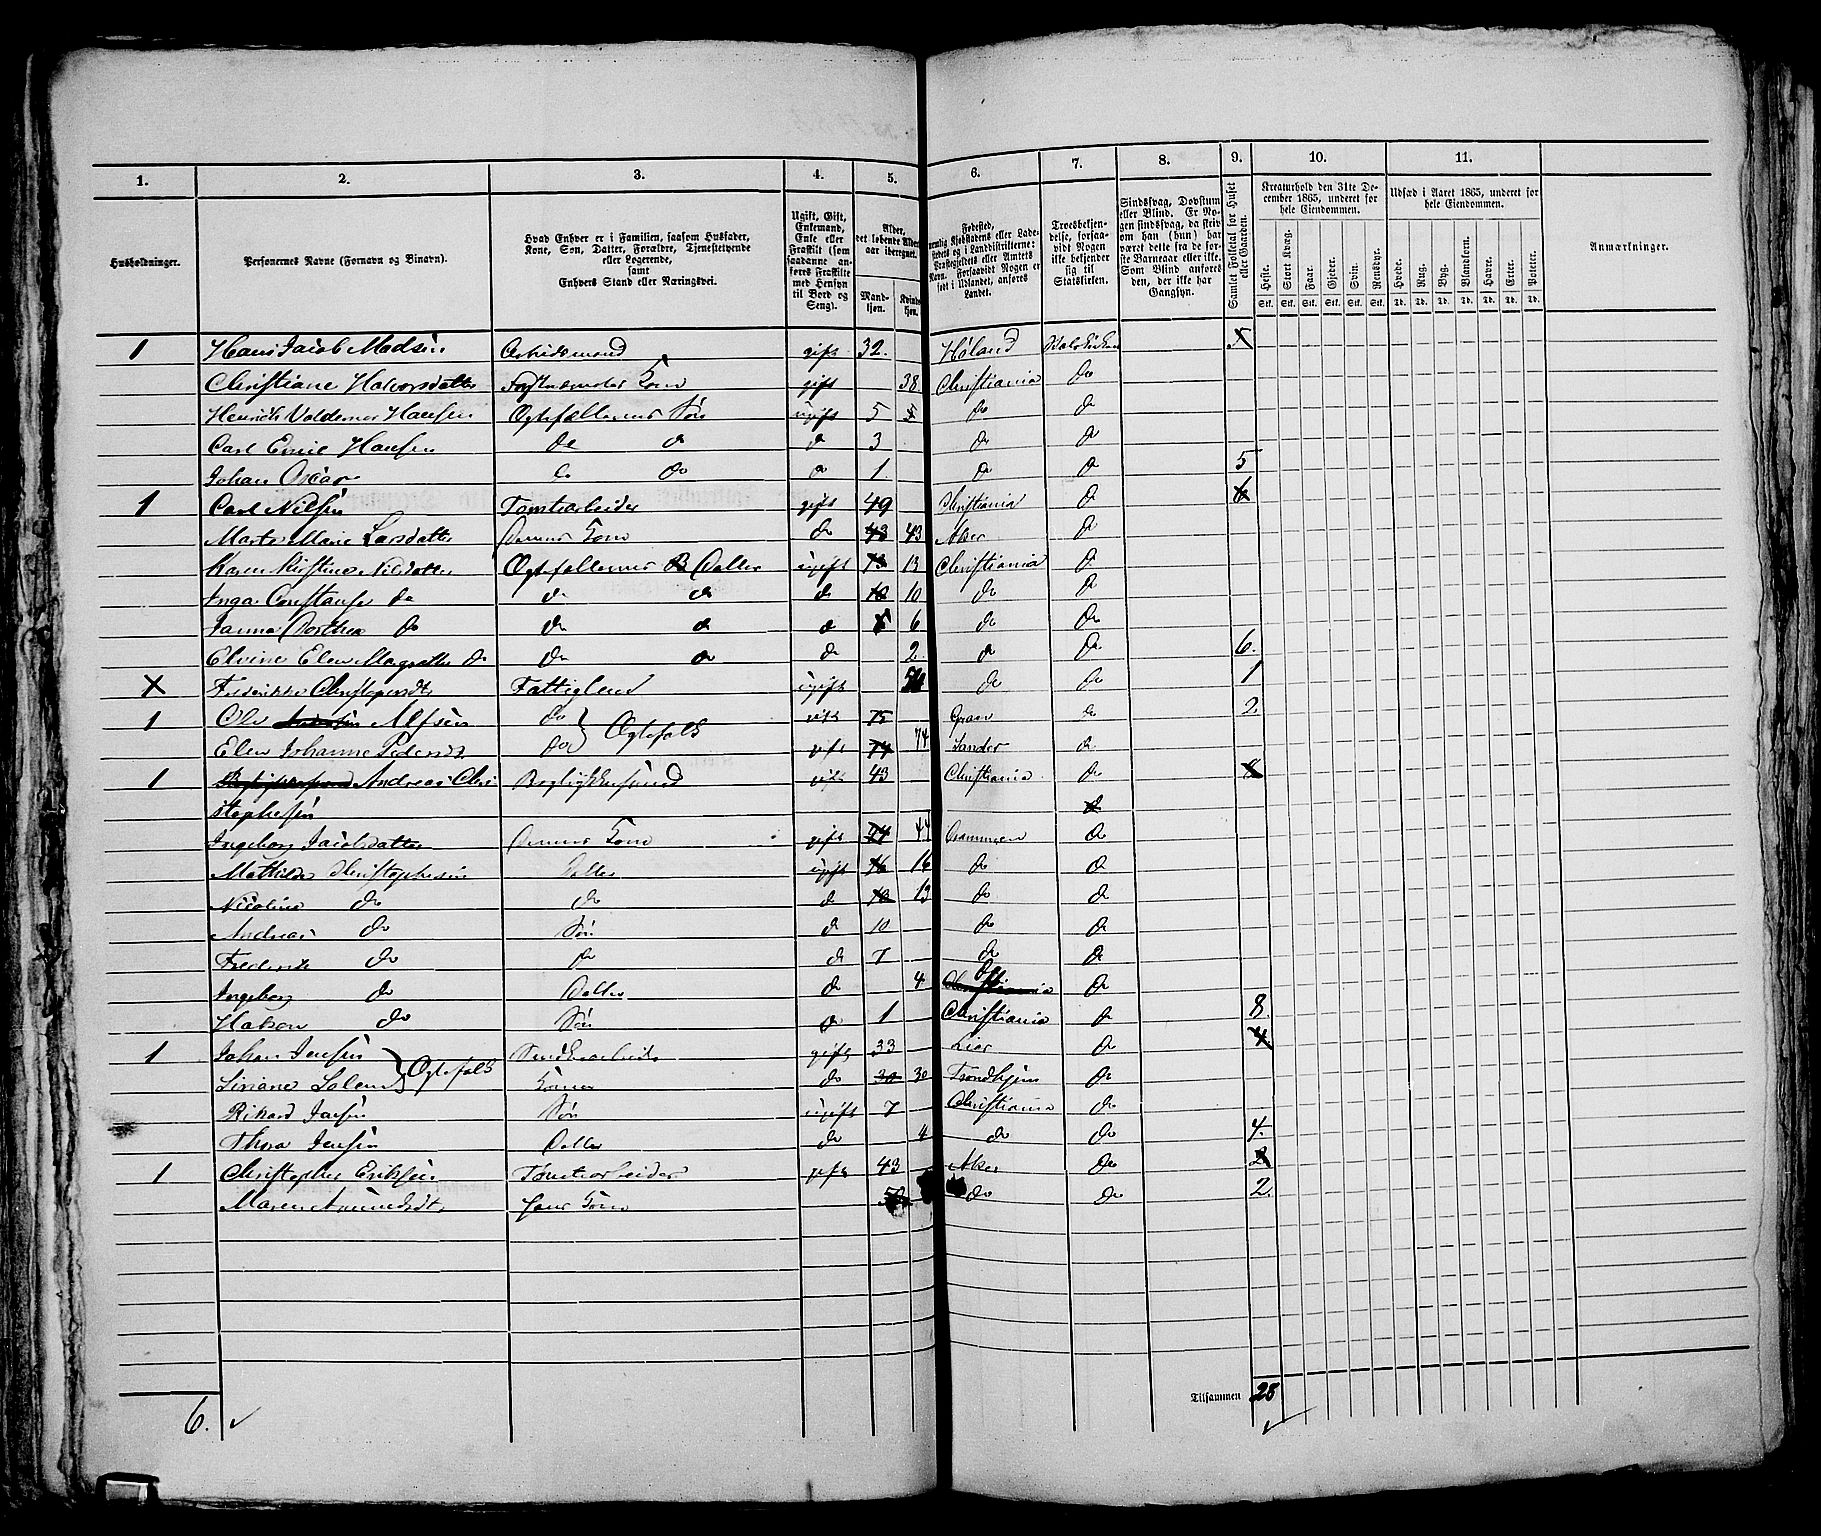 1. 2. 3. 4. 5. 6. 7. 8. 9. 10. 11.
Husholdninger.
Personernes Navne (Fornavn og Binavn).
Hvad Enhver er i Familien, saasom Husfader,
Kone, Søn, Datter, Forældre, Tjenestetyende
eller Logerende,
samt
Enhvers Stand eller Næringsvei.
Ugift, Gift,
Enkemand,
Enke eller
Fraskilt (som
saadanne an-
føres Fraskilte
med Hensyn
til Bord og
Seng).
Alder,
det løbende Alders-
aar iberegnet.
Mand-
kjøn. Kvind-
kjøn.
Fødested,
nemlig Kjøbstadens eller Lade-
stedets og i Landdistrikterne:
Præstegjeldets eller Amtets
Navn. Forsaavidt Nogen er
født i Udlandet, anføres
Landet.
Troesbekjen-
delse, forsaa-
vidt Nogen
ikke bekjender
sig til
Statskirken.
Sindssvag, Døvstum
eller Blind. Er No-
gen sindssvag, da skriv
om han (hun) har
været dette fra de før-
ste Barneaar eller ikke.
Som Blind anføres
den, der ikke har
Gangsyn.
Samlet Folketal for Huset
eller Gaarden.
Kreaturhold den 31te De-
cember 1865, underet for
hele Eiendommen.
Heste. Stort Kvæg. Faar. Gjeder. Svin. Rensdyr.
Stk. Stk. Stk. Stk. Stk. Stk.
Udsæd i Aaret 1865, underet for
hele Eiendommen.
Hvede. Rug. Byg. Blandkorn. Havre. Erter. Poteter.
Td. Td. Td. Td. Td. Td. Td.
Anmærkninger.
1 Hans Jacob Madsen Arbeidsmand gift 32. Høland Statskirken 5
Christiane Halvorsdatter Kone gift 38 Christiania do
Henrik Valdemar Hansen Ægtefællernes Søn ugift 5 5 do do
Carl Emil Hansen do do do 3 do do
Johan Oscar do do do 1. do do 5
1 Carl Nilsen Tomtearbeider gift 49 Christiania do 6
Marte Marie Larsdatter Dennes Kone do 43 43 Aker do
Karen Kirstine Nilsdatter Ægtefællernes Datter ugift 13 13 Christiania do
Inga Constanse do do do do 10 10 do do
Janna Dorthea do do do do 6 do do
Elvine Elen Magrette do do do do 2 do do 6.
X Frederikke Christophersdt Fattiglem ugift do do 1
1 Ole Alfsen do } Ægtefolk gift 75 Gran do 2
Elen Johanne Pedersdt do gift 74 74 Sander do
1 Andreas Chri- gift 43 Christiania do 8
stophersen do
Ingeborg Jacobsdatter Dennes Kone gift 44 44 Drammen do
Mathilde Christophersen Datter ugift 16 16 do do
Nicoline do do do 13 do do
Andreas do Søn do 10 do do
Frederik do do do 7 do do
Ingeborg do Datter do 4 Christiania do do
Hakon do Søn do 1 Christiania do 8
1 Johan Jensen } Ægtefolk gift 33 Lier do 4
Kone do 30 30 Trondhjem do
Rikard Jensen Søn ugift 7 Christiania do
Thora Jensen Datter do 4 do do 4.
1 Christopher Eriksen Tomtearbeider gift 43 Aker do 2
Maren hans Kone do do 2.
Tilsammen 28
6.